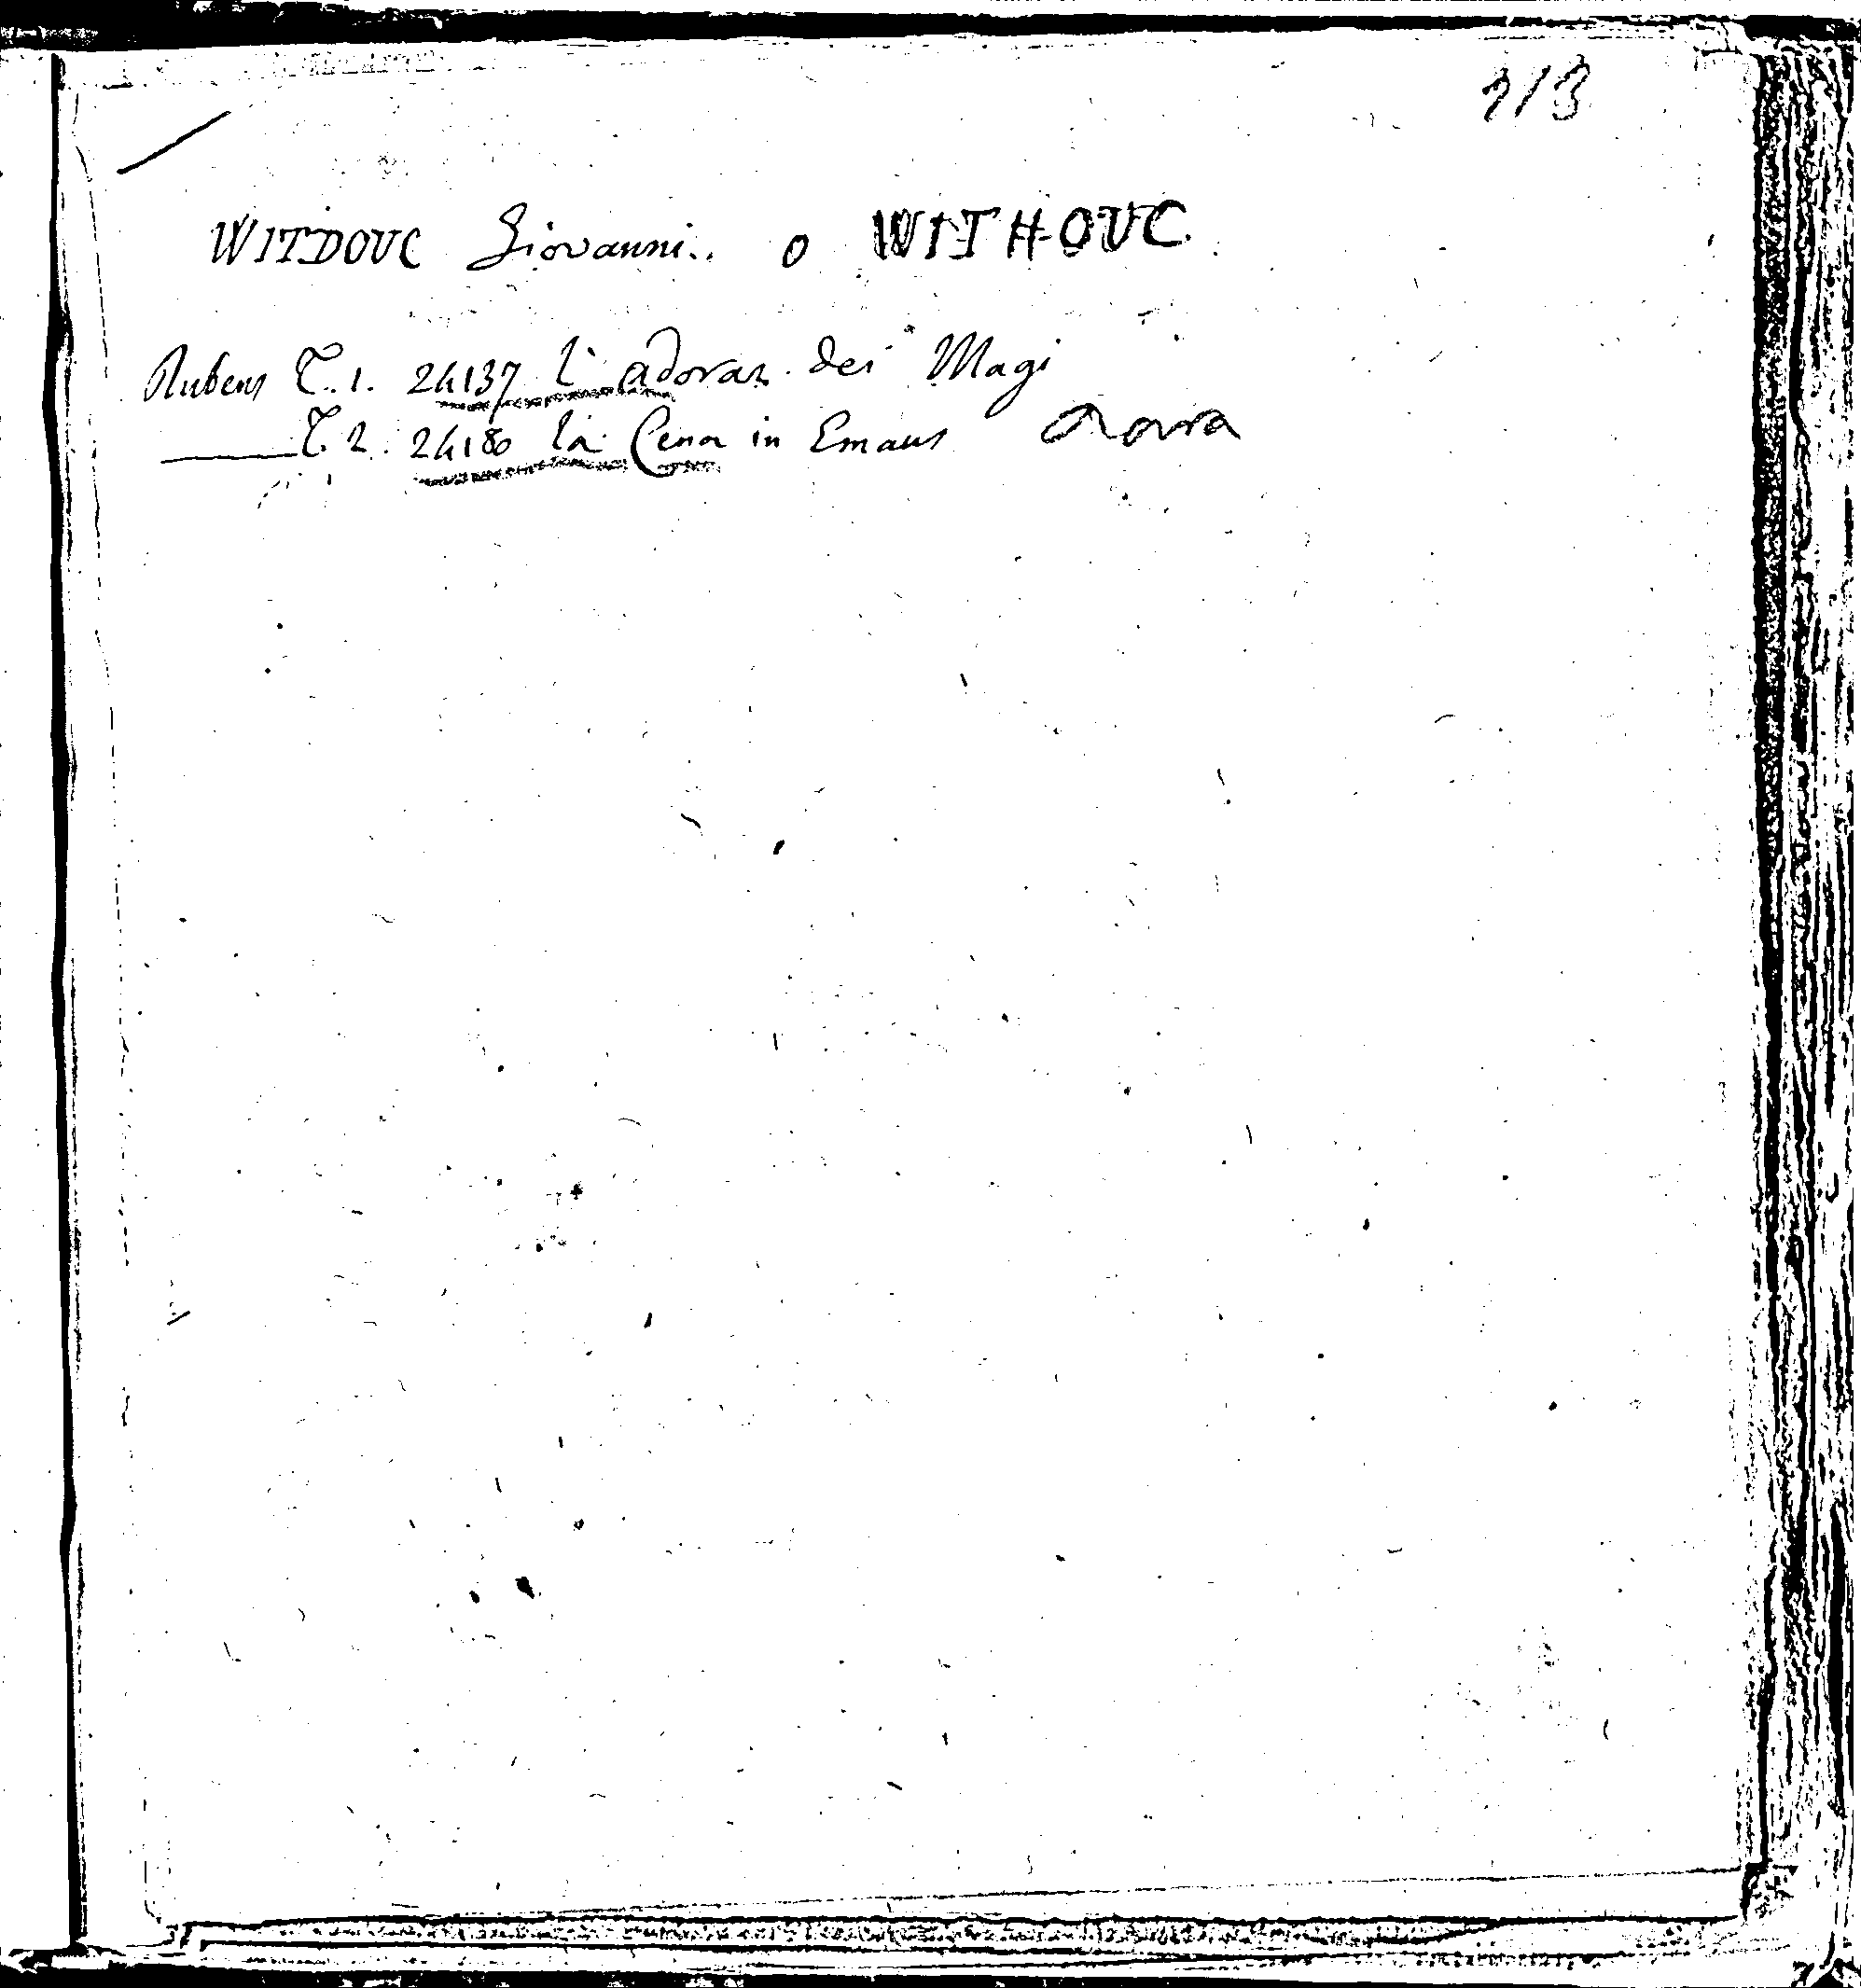 213
WITDOUC Giovanni.. o WITHOUC.
Rubens T. 1. 24137 l'adoraz. dei Magi
T. 2. 24180 la Cena in Emaus rara